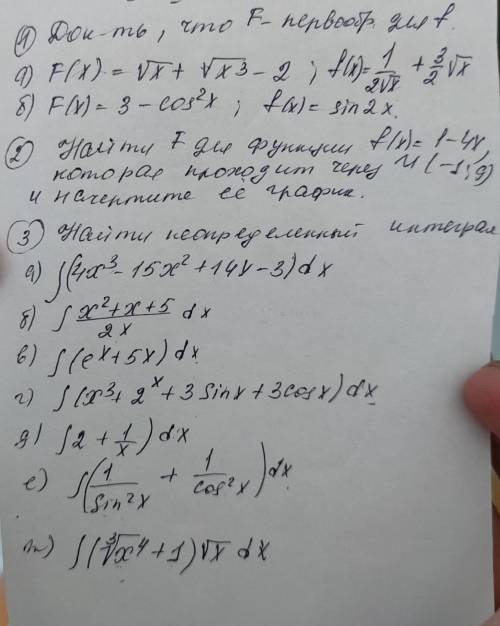 ① Док-ть, что F - первообр. для f.
а) F(x) = √x + √x3 - 2 ; f(x)= 1/2√x + 3/2 √x
б) F(x) = 3 - cos²x ; f(x) = sin 2x.
② Найти F для функции f(x)= 1-4x,
которая проходит через M(-1; 9)
и начертите её график.
③ Найти неопределенный интеграл
а) ∫(4x³ - 15x² + 14x - 3) dx
б) ∫ x²+x+5/2x dx
в) ∫(eˣ + 5x) dx
г) ∫(x³ + 2ˣ + 3 sinx + 3cosx) dx
д) ∫ 2 + 1/x ) dx
е) ∫(1/sin²x + 1/cos²x) dx
ж) ∫(³√x⁴ + 1) √x dx